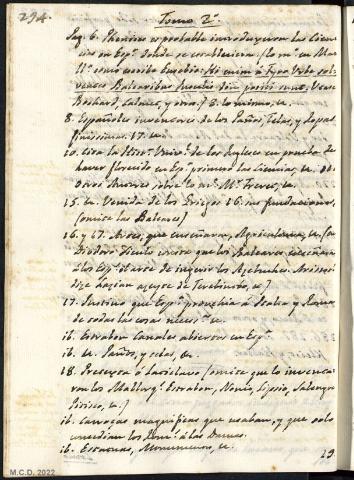 294.
Tomo 2º
Pag. 6. Phenicios es probable introduxeron las Cien-
cias en Espª. donde se establecieron. (Lo mº en Ma-
llª. como escribe Eusebio: Hi enim à Tyro Urbe sol-
ventes Balearibus Insulis
Bochard, Calmet, y otros.) 8. lo mismo, &.
8. Españoles inventores de los Paños, Telas, y Ropas
finissimas. 17. &.
10. Cita la Histª. Univˡ. de los Ingleses en prueba de
haver florecido en Espª. primero las Ciencias, &.
Otros Autores sobre lo mº. Mr. Freret, &.
15. &. Venida de los Griegos 16. sus fundaciones,
(omite las Baleares)
16. y 17. que enseñaron, Agricultura, &. (
Diodoro Siculo escrive que los Baleares enseñaron
à los Espª. el arte de
dize hacian azeyte de Terebinto, &.)
17. Justino que Espª. provehia à Italia y Roma
de todas las cosas necessª. &.
ib. Estrabon Canales abiertos en Espª.
ib. &. Paños, y telas, &.
18. Pretexta ò Laticlavo (omite que lo inventa-
ron los Mallorqˢ. Estrabon, Nonio, Lipsio,
&.)
ib. Carrozas magnificas que usaban, y que solo
concedian los Romˢ. à las Damas.
ib. Estatuas, Monumentos, &.
19
M.C.D. 2022